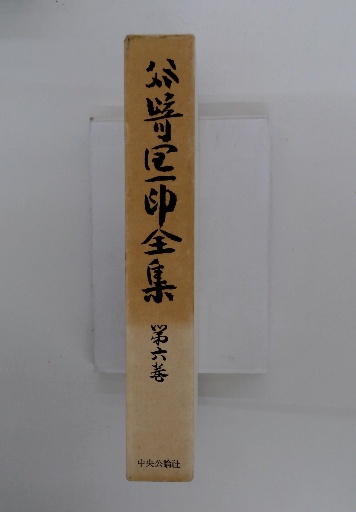 谷崎潤一郎全集
第六巻
中央公論社